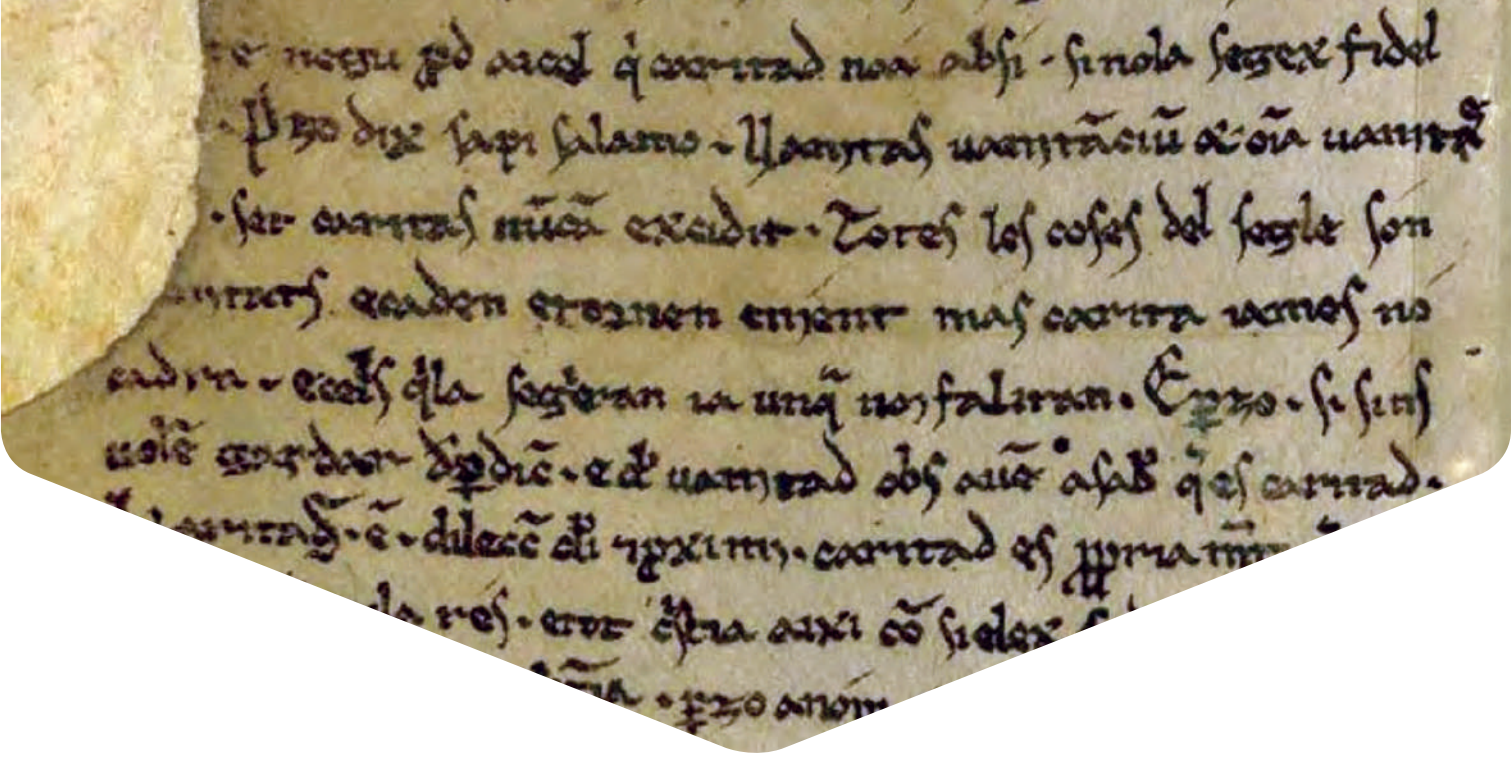 negu pd aicel q̇ caritad noa absi · sinola segex fidel
· P̱zo dix sapi salamo · Uanitas uanitāciū & oīa uanitā
· set caritas nūcā excidit · Totes les coses del segle son
uanitats ecaden etornen enient mas carita iames no
caden · ecels q̇la segeran ia unq̄ noj faliran · Epzo · si sins
uolē gardar dp̱diċ · e dl uanitad obs auē asab q̇ es caritad ·
Caritas · ē · dilecc̄ di ⁊ pximi · caritad es ppria
res · ent aixi cō sielex
· p̱zo anom